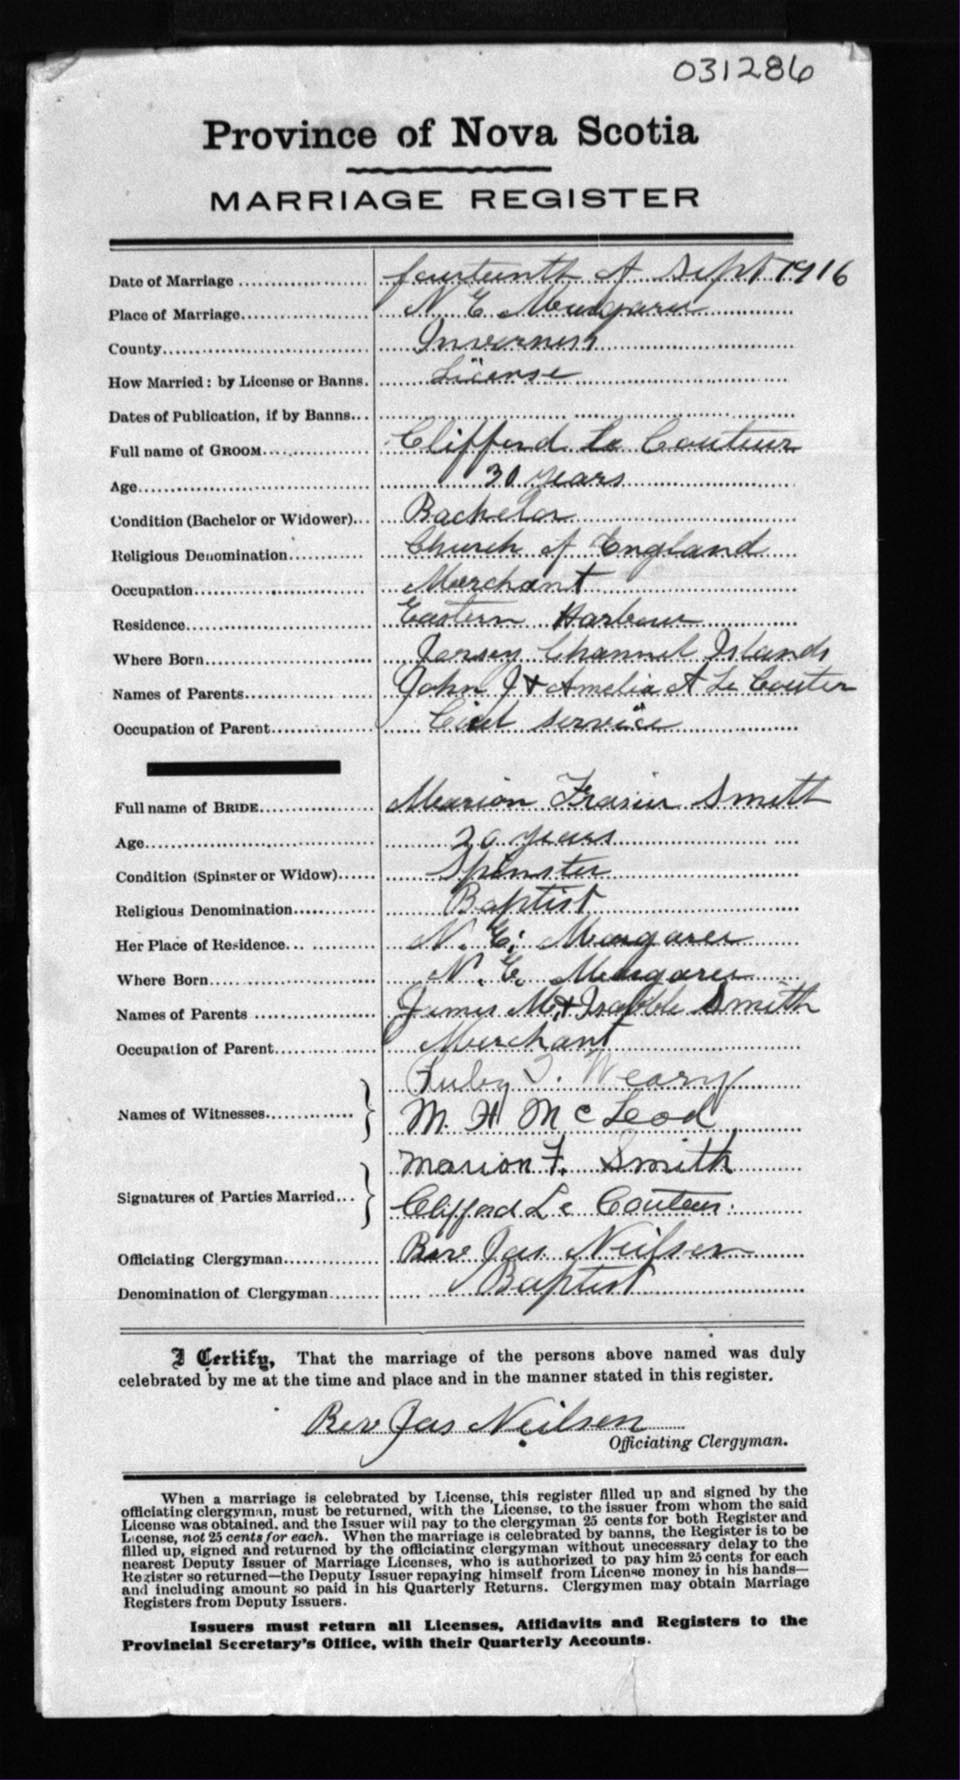 031286
Province of Nova Scotia
MARRIAGE REGISTER
Date of Marriage fourteenth of Sept 1916
Place of Marriage N E Margaree
County Inverness
How Married: by License or Banns. License
Dates of Publication, if by Banns
Full name of GROOM Clifford Le Couteur
Age 30 years
Condition (Bachelor or Widower) Bachelor
Religious Denomination Church of England
Occupation Merchant
Residence Eastern Harbour
Where Born Jersey Channel Islands
Names of Parents John J & Amelia A Le Couter
Occupation of Parent Civil service
Full name of BRIDE Marion Frasier Smith
Age 20 years
Condition (Spinster or Widow) Spinster
Religious Denomination Baptist
Her Place of Residence N. E. Margaree
Where Born N. E. Margaree
Names of Parents James M. & Isabble Smith
Occupation of Parent Merchant
Ruby T. Weary
Names of Witnesses
M. H McLeod
Marion F. Smith
Signatures of Parties Married
Clifford Le Couteur.
Officiating Clergyman Rev Jas Neilsen
Denomination of Clergyman Baptist
I Certify, That the marriage of the persons above named was duly
celebrated by me at the time and place and in the manner stated in this register.
Rev Jas Neilsen
Officiating Clergyman.
When a marriage is celebrated by License, this register filled up and signed by the
officiating clergyman, must be returned, with the License, to the issuer from whom the said
License was obtained, and the Issuer will pay to the clergyman 25 cents for both Register and
License, not 25 cents for each. When the marriage is celebrated by banns, the Register is to be
filled up, signed and returned by the officiating clergyman without unecessary delay to the
nearest Deputy Issuer of Marriage Licenses, who is authorized to pay him 25 cents for each
Register so returned—the Deputy Issuer repaying himself from License money in his hands—
and including amount so paid in his Quarterly Returns. Clergymen may obtain Marriage
Registers from Deputy Issuers.
Issuers must return all Licenses, Affidavits and Registers to the
Provincial Secretary's Office, with their Quarterly Accounts.